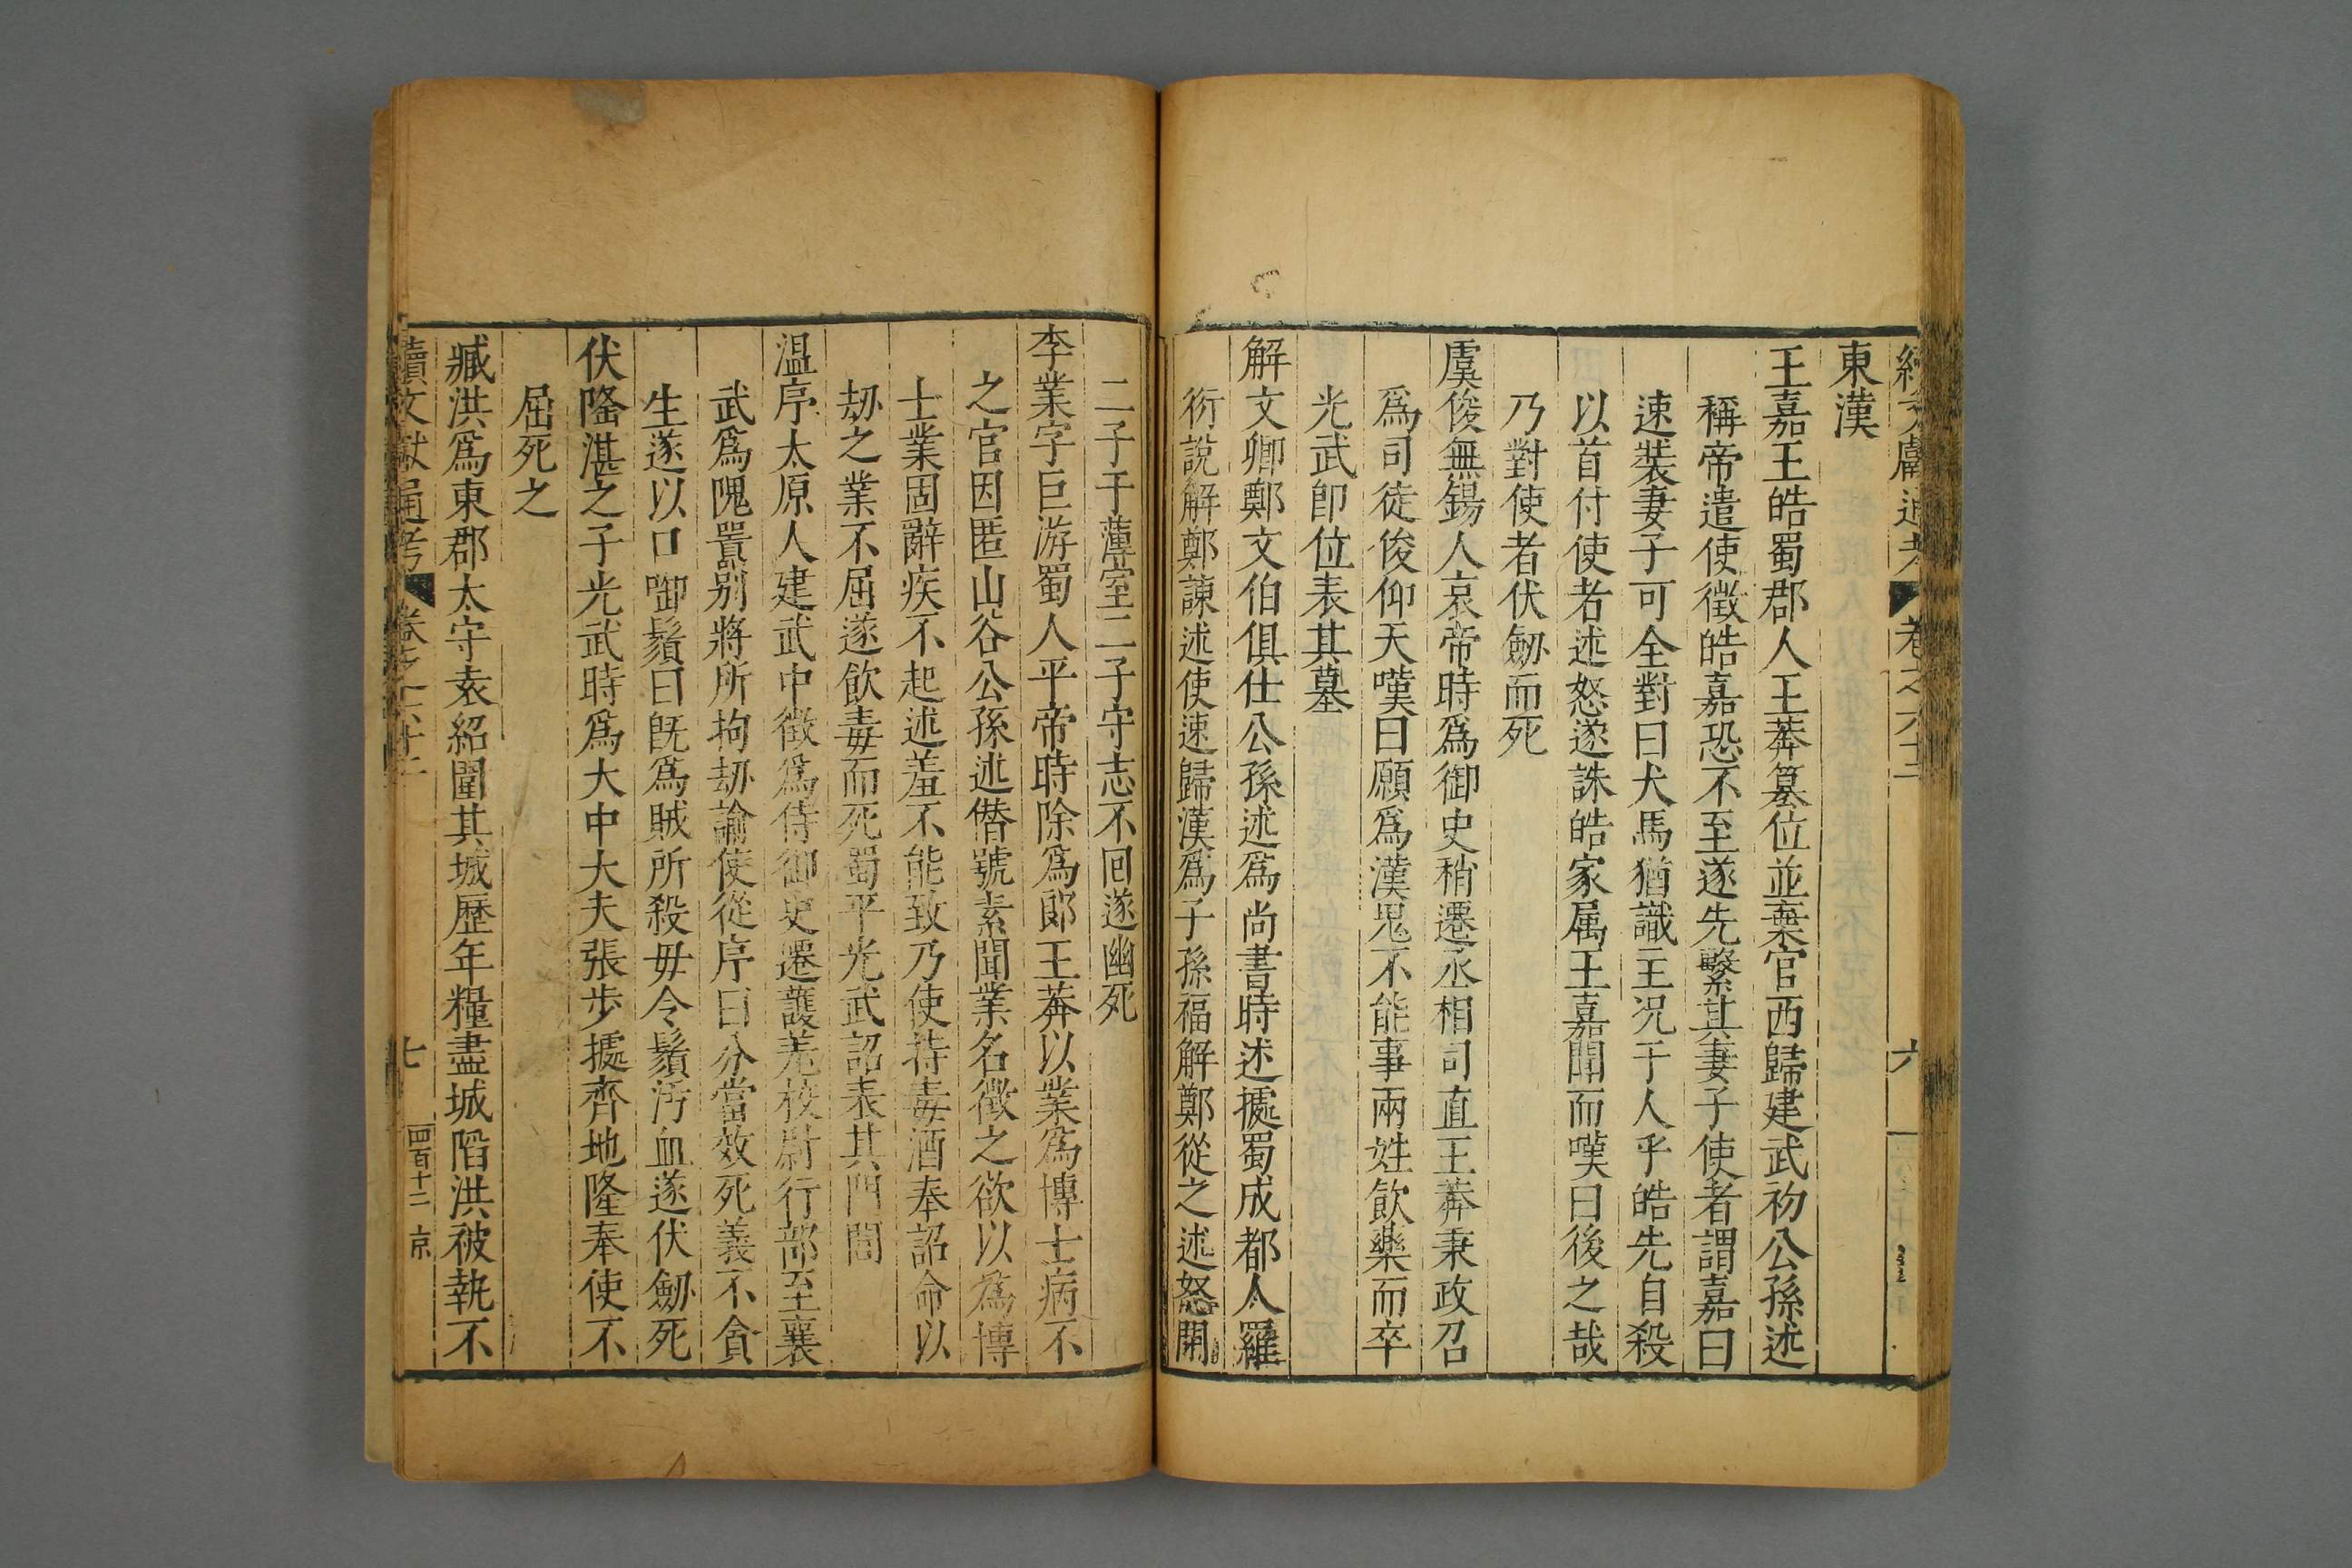 續文獻通考 卷之六十二 六
東漢
王嘉王皓蜀郡人王莽篡位並棄官西歸建武初公孫述
稱帝遣使徵皓嘉恐不至遂先繫其妻子使者謂嘉曰
速裝妻子可全對曰犬馬猶識主况于人乎皓先自殺
以首付使者述怒遂誅皓家属王嘉聞而嘆曰後之哉
乃對使者伏劒而死
虞俊無錫人哀帝時爲御史稍遷丞相司直王莽秉政召
爲司徒俊仰天嘆曰願爲漢鬼不能事兩姓飲藥而卒
光武卽位表其墓
解文卿鄭文伯俱仕公孫述爲尚書時述據蜀成都人羅
衍說解鄭諫述使速歸漢爲子孫福解鄭從之述怒閉
二子于薄室二子守志不回遂幽死
李業字巨游蜀人平帝時除爲郎王莽以業爲博士病不
之官因匿山谷公孫述僭號素聞業名徵之欲以爲博
士業固辭疾不起述羞不能致乃使持毒酒奉詔命以
劫之業不屈遂飲毒而死蜀平光武詔表其門閭
温序太原人建武中徵爲侍御史遷護羌校尉行部至襄
武爲隗囂别將所拘刼諭使從序曰分當效死義不貪
生遂以口啣鬚曰旣爲賊所殺毋令鬚汚血遂伏劒死
伏隆湛之子光武時爲大中大夫張步據齊地隆奉使不
屈死之
臧洪爲東郡太守袁紹圍其城歷年糧盡城陷洪被執不
續文獻通考 卷之六十二 七 四百十二 京